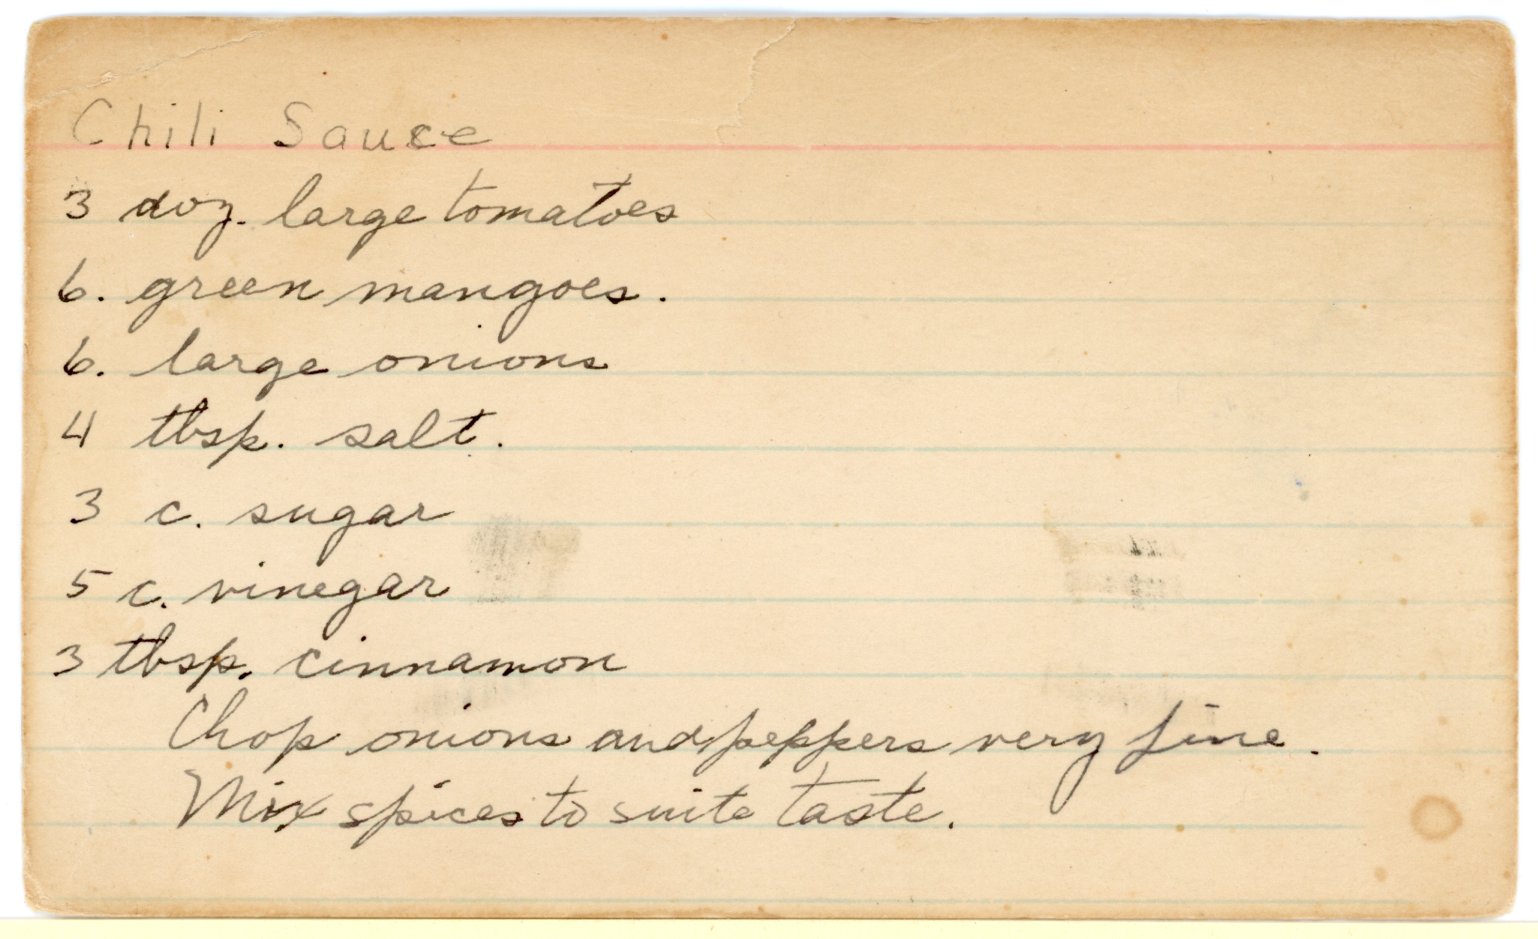 Chili Sauce
3 doz. large tomatoes
6. green mangoes.
6. large onions
4 tbsp. salt.
3 c. sugar
5 c. vinegar
3 tbsp. cinnamon
Chop onions and peppers very fine.
Mix spices to suite taste.